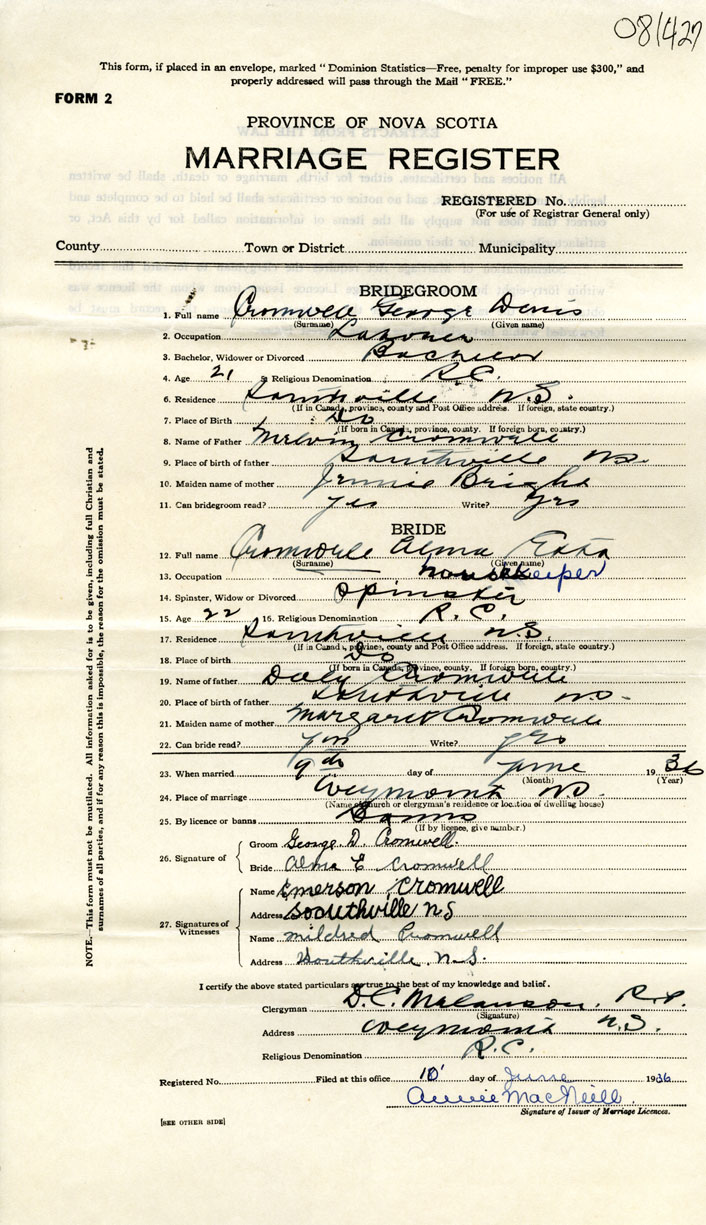 081427
This form, if placed in an envelope, marked "Dominion Statistics—Free, penalty for improper use $300," and
properly addressed will pass through the Mail "FREE."
FORM 2
PROVINCE OF NOVA SCOTIA
MARRIAGE REGISTER
REGISTERED No.
(For use of Registrar General only)
County Town or District Municipality
BRIDEGROOM
1. Full name Cromwell George Denis
(Surname) (Given name)
2. Occupation Labourer
3. Bachelor, Widower or Divorced Bachelor
4. Age 21 5. Religious Denomination R.C.
6. Residence Southville N.S.
(If in Canada, province, county and Post Office address. If foreign, state country.)
7. Place of Birth Do
(If born in Canada, province, county. If foreign born, country.)
8. Name of Father Melvin Cromwell
9. Place of birth of father Southville N.S.
10. Maiden name of mother Jennie Bright
11. Can bridegroom read? yes Write? yes
BRIDE
12. Full name Cromwell Alma Etta
(Surname) (Given name)
13. Occupation housekeeper
14. Spinster, Widow or Divorced Spinster
15. Age 22 16. Religious Denomination R.C.
17. Residence Southville N.S.
(If in Canada, province, county and Post Office address. If foreign, state country.)
18. Place of birth Do
(If born in Canada, province, county. If foreign born, country.)
19. Name of father Cromwell
20. Place of birth of father Southville N.S.
21. Maiden name of mother Margaret Cromwell
22. Can bride read? yes Write? yes
23. When married 9th day of June 1936
(Month) (Year)
24. Place of marriage Weymouth N.S.
(Name of church or clergyman's residence or location of dwelling house)
25. By licence or banns Banns
(If by licence, give number.)
26. Signature of
Groom George D. Cromwell.
Bride Alma E Cromwell
27. Signatures of Witnesses
Name Emerson Cromwell
Address Soouthville N.S
Name Mildred Cromwell
Address Southville, N.S.
I certify the above stated particulars are true to the best of my knowledge and belief.
Clergyman D.C. Melanson, R.P.
(Signature)
Address Weymouth N.S.
Religious Denomination R.C.
Registered No. Filed at this office 10 day of June 1936
Annie MacNeill
Signature of Issuer of Marriage Licences.
[SEE OTHER SIDE]
NOTE.—This form must not be mutilated. All information asked for is to be given, including full Christian and
surnames of all parties, and if for any reason this is impossible, the reason for the omission must be stated.